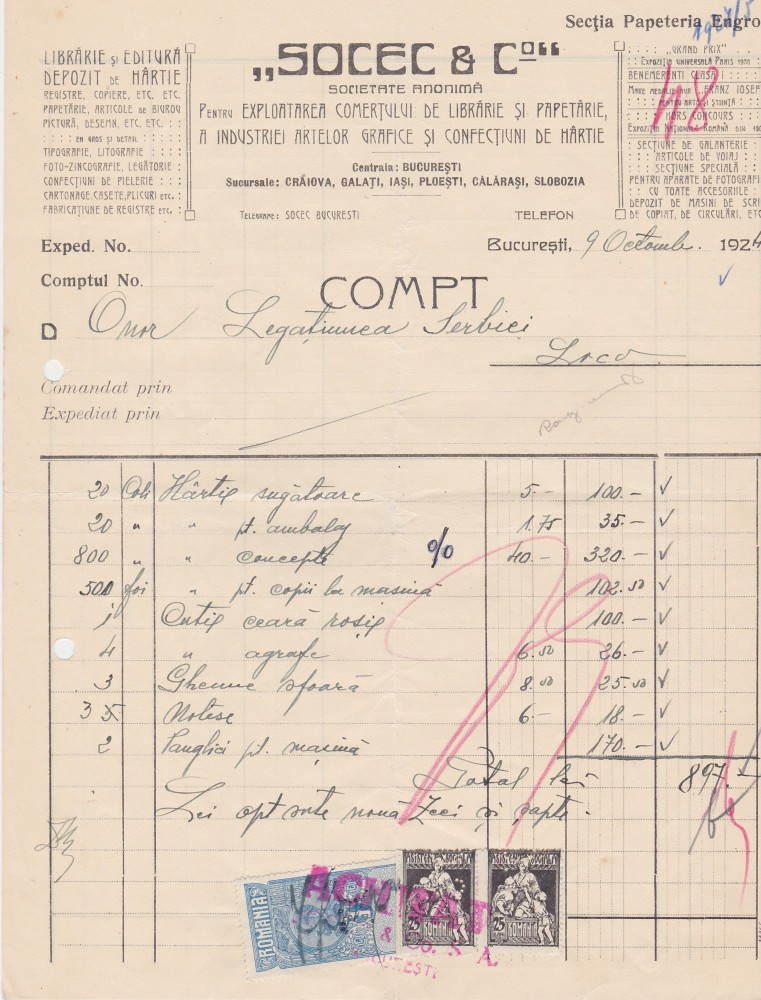 Secția Papeteria Engro
1924/5
LIBRĂRIE ȘI EDITURĂ
DEPOZIT DE HÂRTIE
REGISTRE, COPIERE, ETC. ETC.
PAPETĂRIE, ARTICOLE DE BIUROU
PICTURĂ, DESEMN, ETC. ETC.
EN GROS ȘI DETAIL
TIPOGRAFIE, LITOGRAFIE
FOTO-ZINCOGRAFIE, LEGĂTORIE
CONFECȚIUNI DE PIELERIE
CARTONAGE, CASETE, PLICURI ETC.
FABRICAȚIUNE DE REGISTRE ETC.
„SOCEC & Cº“
SOCIETATE ANONIMĂ
PENTRU EXPLOATAREA COMERȚULUI DE LIBRĂRIE ȘI PAPETĂRIE,
A INDUSTRIEI ARTELOR GRAFICE ȘI CONFECȚIUNI DE HÂRTIE
Centrala: BUCUREȘTI
Sucursale: CRĂIOVA, GALAȚI, IAȘI, PLOEȘTI, CĂLĂRAȘI, SLOBOZIA
TELEGRAME: SOCEC BUCUREȘTI
TELEFON
„GRAND PRIX“
EXPOZIȚIA UNIVERSALĂ PARIS 1900
BENEMERENTI CLASA I
FRANZ IOSEF
PENTRU ARTE ȘI ȘTIINȚĂ
HORS CONCOURS
48
SECȚIUNE DE GALANTERIE
ARTICOLE DE VOIAJ
SECȚIUNE SPECIALĂ
PENTRU APARATE DE FOTOGRAFI
CU TOATE ACCESORIILE
DEPOZIT DE MAȘINI DE SCRI
DE COPIAT, DE CIRCULĂRI, ETC
Exped. No.
București, 9 Octombr. 1924
Comptul No.
COMPT
D Onor Legațiunea Serbiei
Loco
Comandat prin
Expediat prin
20 Coli Hârtie sugătoare 5.- 100.-
20 " " pt. ambalaj 1.75 35.-
800 " " concepte % 40.- 320.-
500 foi " pt. copii la masină 102.50
1 Cutie ceară roșie 100.-
4 " agrafe 6.50 26.-
3 Gheme sfoară 8.50 25.50
3 Notese 6.- 18.-
2 Panglici pt. mașină 170.-
Total lei 897.-
Lei opt sute nouă zeci și șapte.
ACHITAT
& Co. S. A.
BUCUREȘTI
ROMANIA
ASISTENȚA SOCIALA
25 25
ROMANIA
ASISTENȚA SOCIALA
25 25
ROMANIA